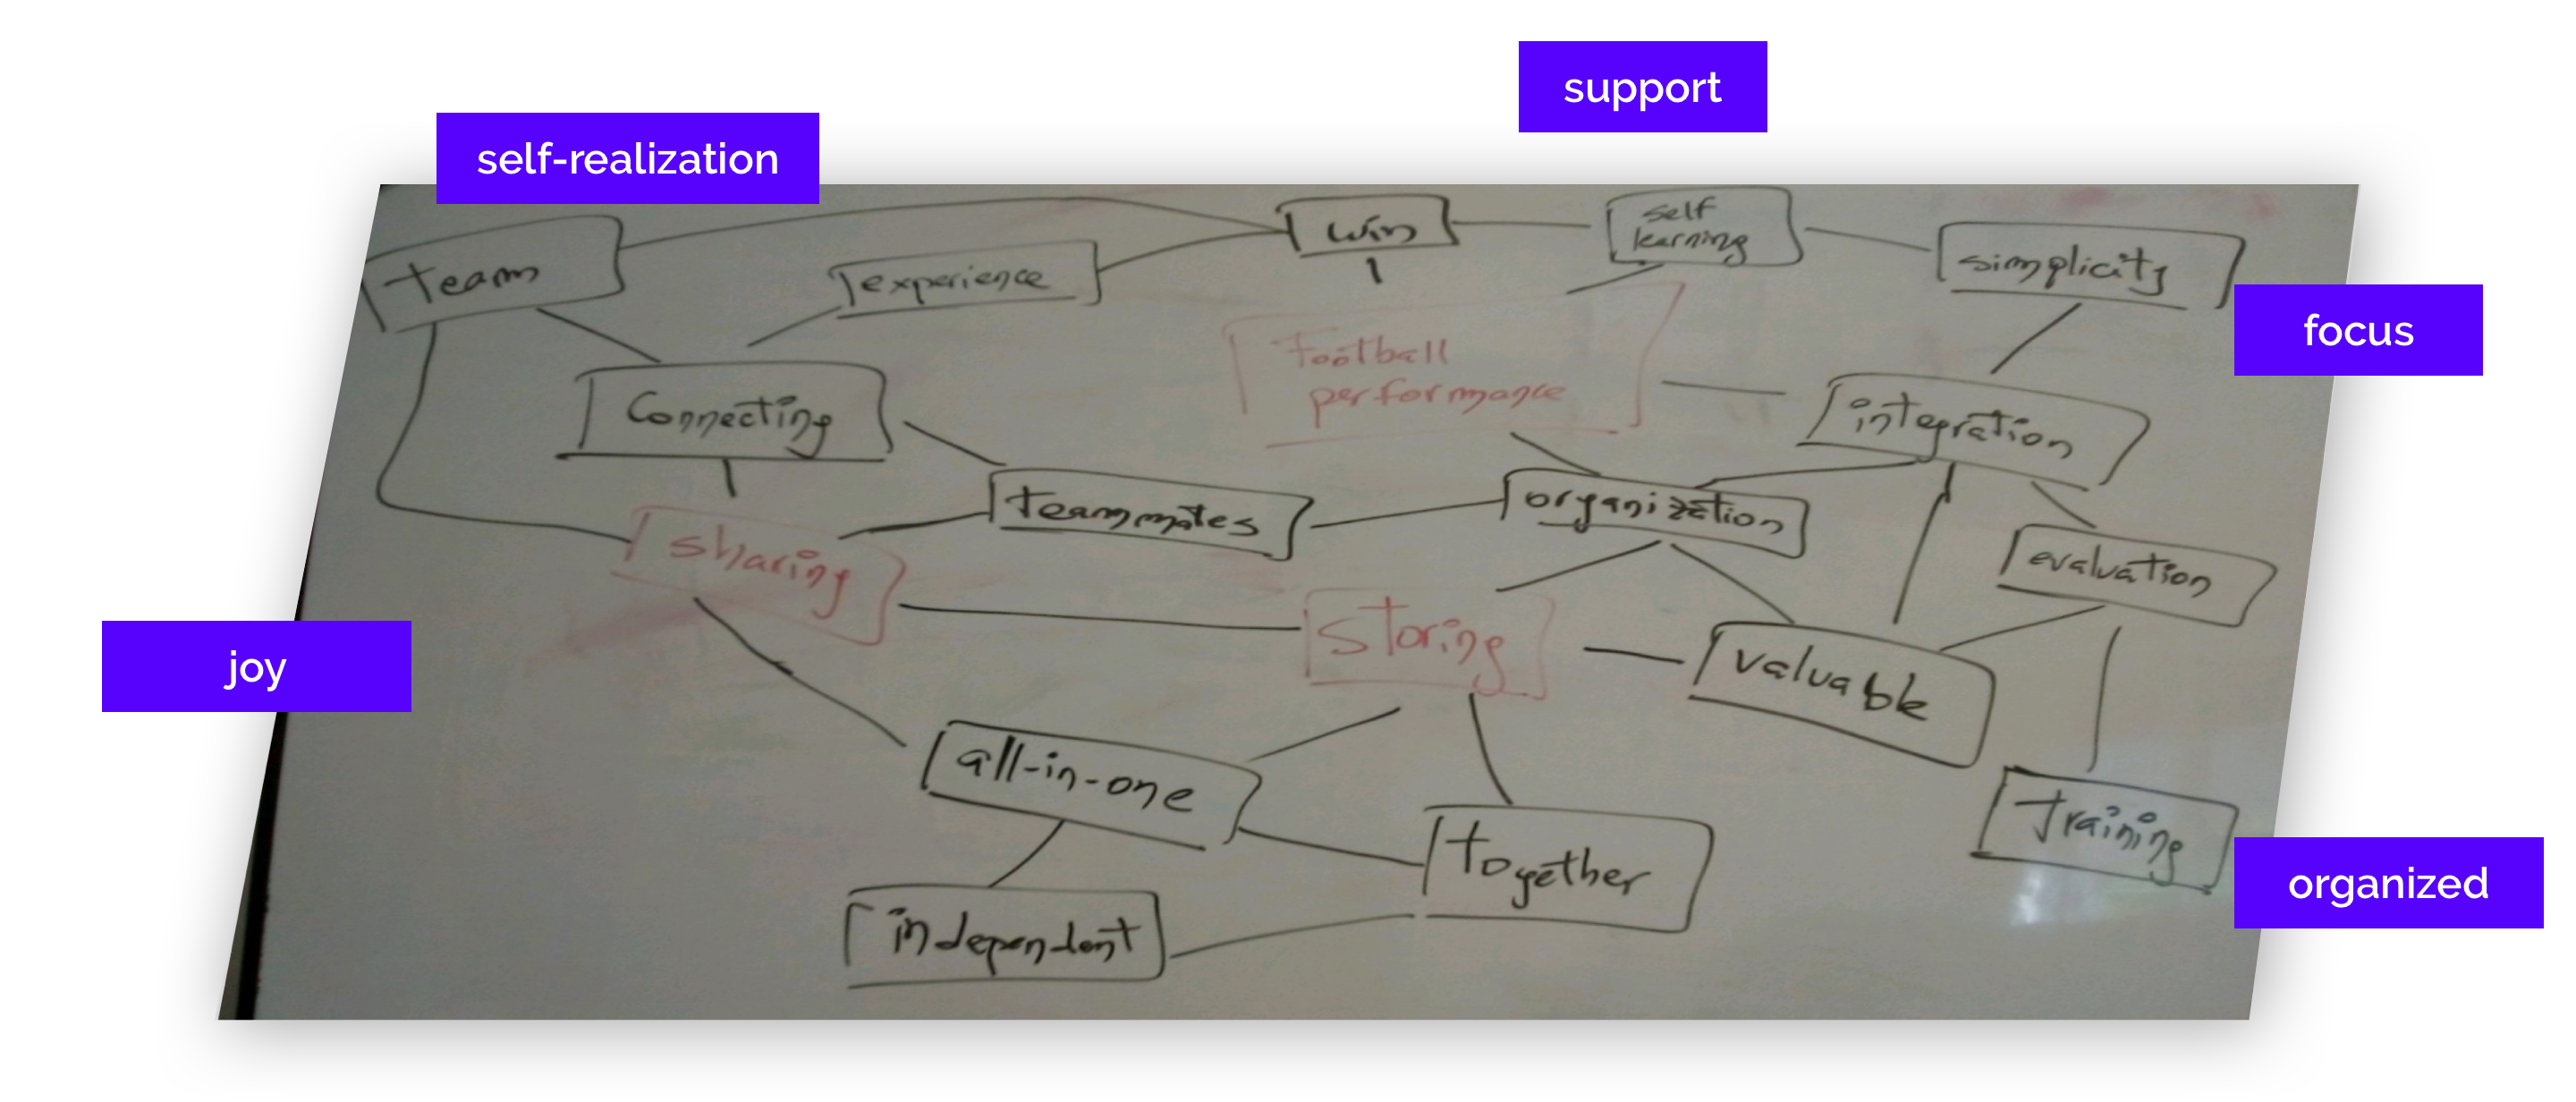 support
self-realization
Team
experience
win
self
learning
simplicity
focus
Football
performance
Connecting
integration
teammates
organization
sharing
evaluation
storing
valuable
joy
all-in-one
together
Training
organized
independent